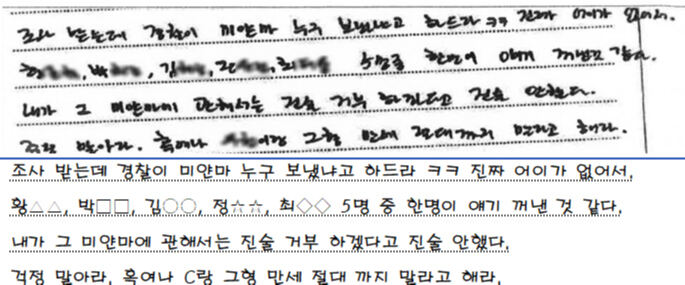 조사 받는데 경찰이 미얀마 누구 보냈냐고 하드라 ㅋㅋ 진짜 어이가 없어서.
황, 박, 김, 정, 최 5명중 한명이 얘기 꺼낸것 같다.
내가 그 미얀마에 관해서는 진술 거부 하겠다고 진술 안했다.
걱정 말아라. 혹여나 이랑 그형 만세 절대까지 말라고 해라.
조사 받는데 경찰이 미얀마 누구 보냈냐고 하드라 ㅋㅋ 진짜 어이가 없어서,
황△△, 박□□, 김○○, 정☆☆, 최◇◇ 5명 중 한명이 얘기 꺼낸 것 같다,
내가 그 미얀마에 관해서는 진술 거부 하겠다고 진술 안했다,
걱정 말아라, 혹여나 C랑 그형 만세 절대 까지 말라고 해라,